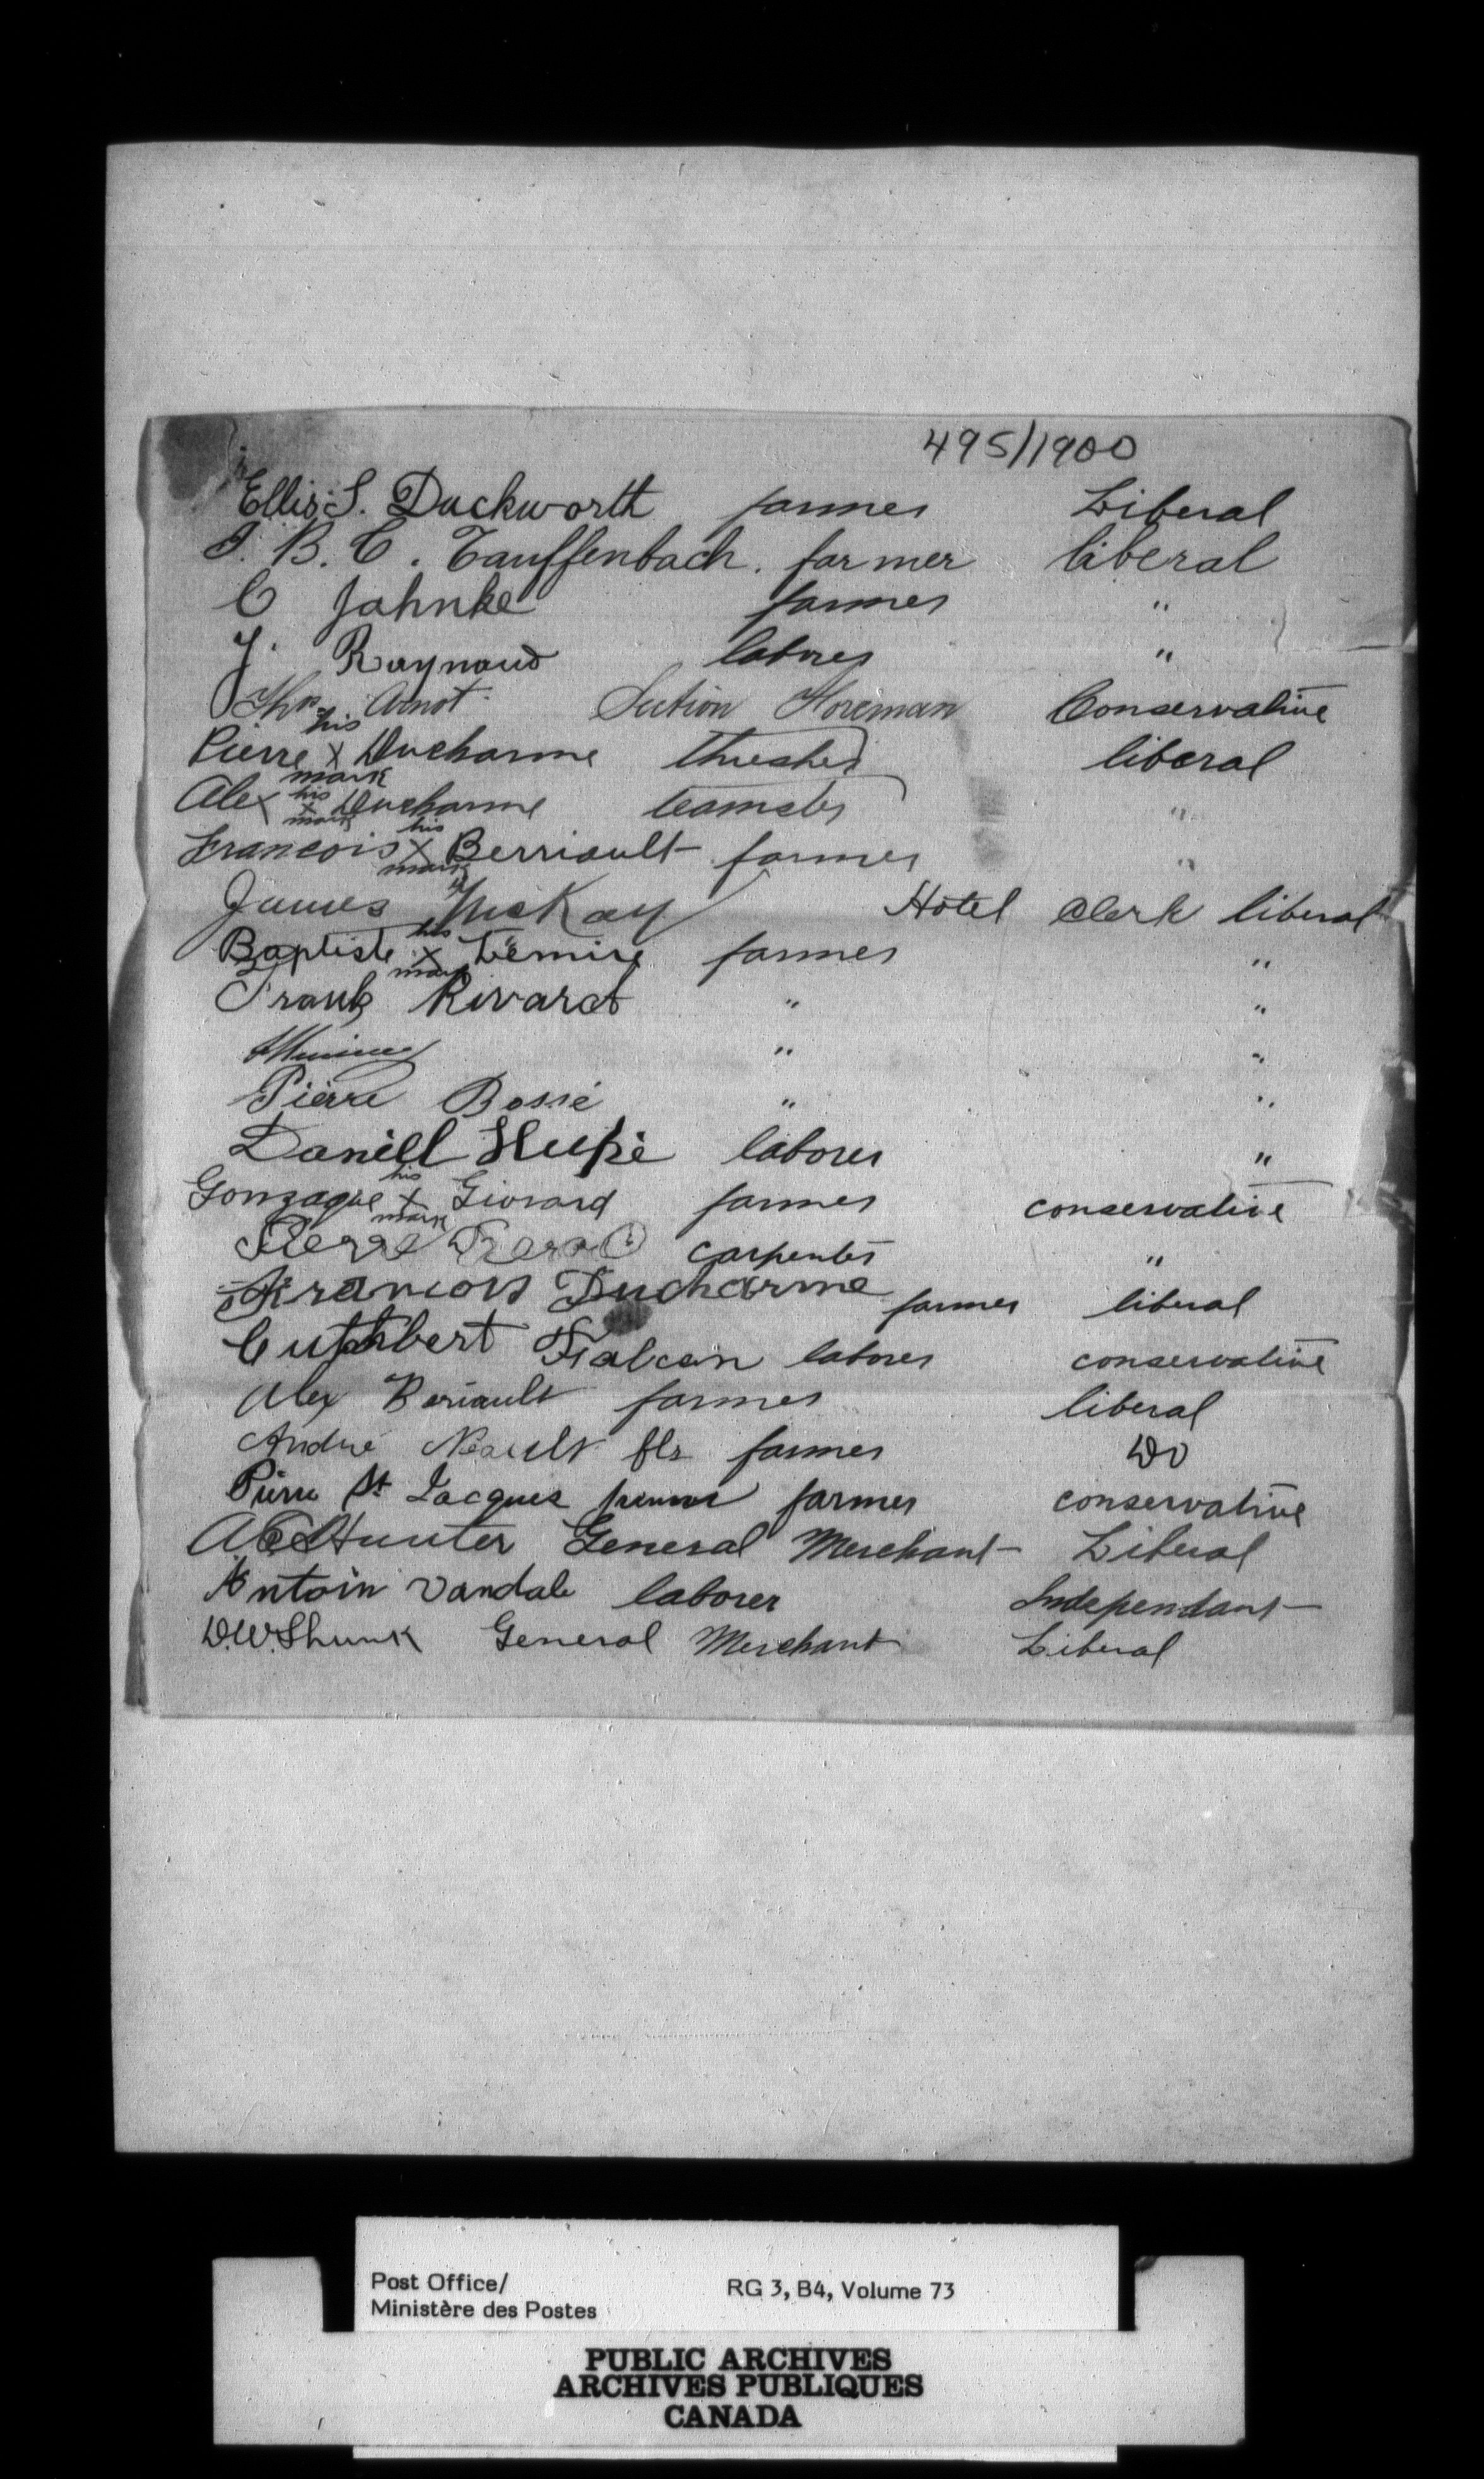 495/1900
Ellis S. Duckworth farmer Liberal
J. B. C. Tauffenbach. farmer liberal
C Jahnke farmer "
J. Raynaud laborer "
Thos Arnot Section Foreman Conservative
Pierre his x mark Ducharme thresher liberal
Alex his x mark Ducharme teamster "
Francois his x mark Berriault farmer "
James McKay Hotel Clerk liberal
Baptiste his x mark Lemire farmer "
Frank Rivard " "
" "
Pierre Bossé " "
Daniel Hupé laborer "
Gonzague his x mark Giorard farmer conservative
Pierre carpenter "
Francois Ducharme farmer liberal
Cuthbert Falcon laborer conservative
Alex Beriault farmer liberal
André Neault fls farmer Do
Pierre St Jacques farmer conservative
Hunter General Merchant Liberal
Antoin Vandale laborer Independant
D.W. Shunk General Merchant Liberal
Post Office/ RG 3, B4, Volume 73
Ministère des Postes
PUBLIC ARCHIVES
ARCHIVES PUBLIQUES
CANADA